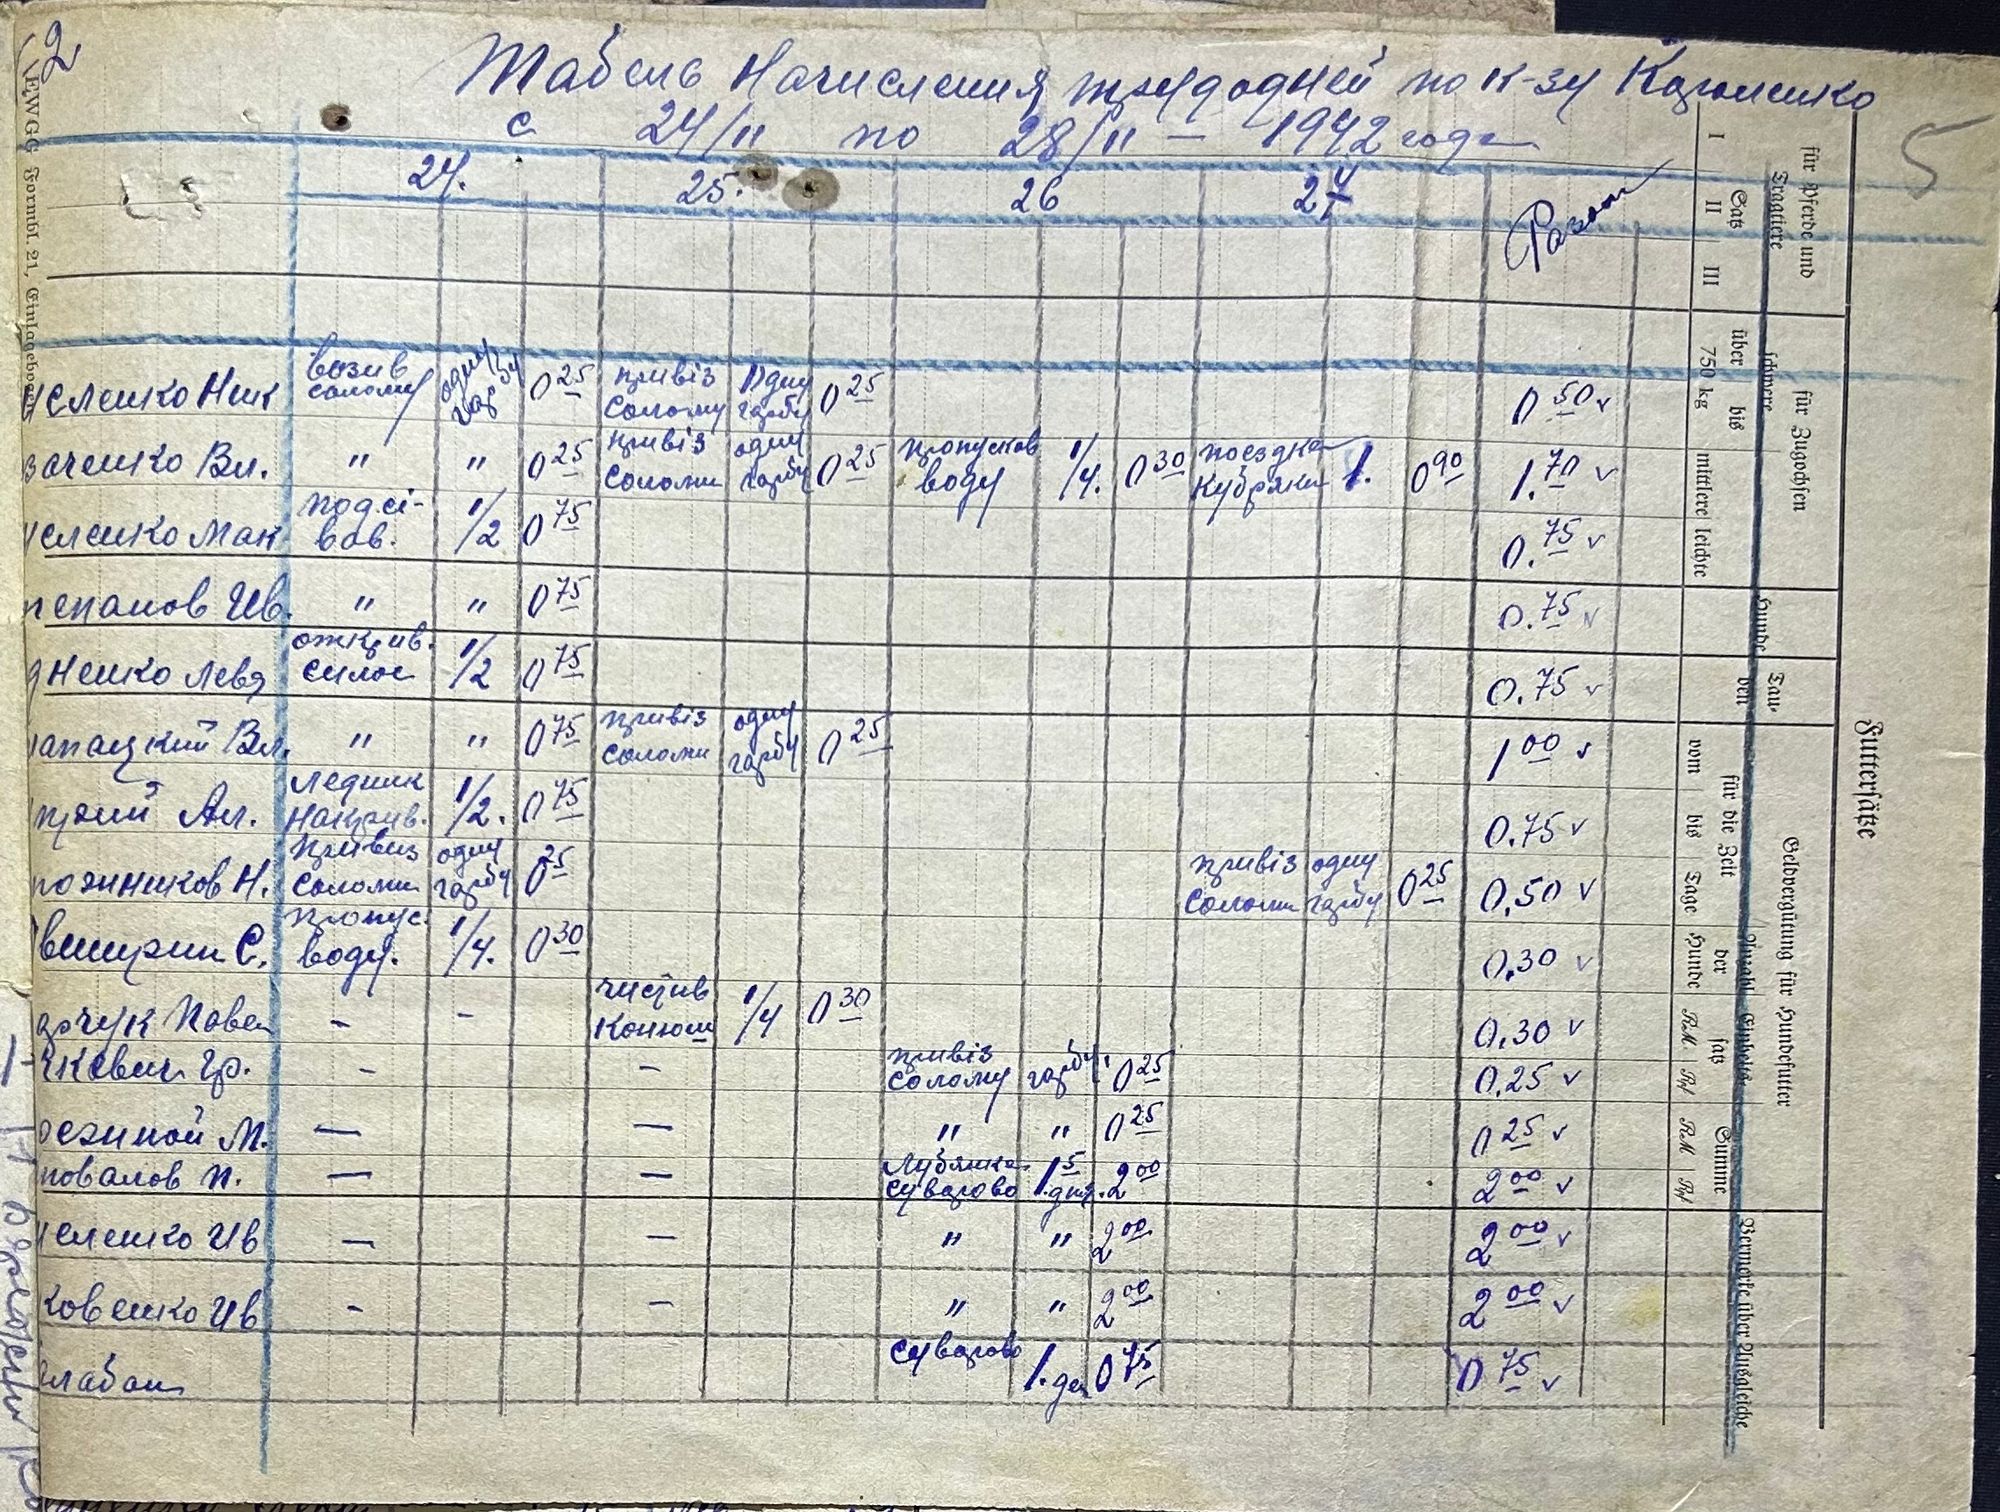 2
Табель Начисления трудодней по к-зу
5
с 24/II по 28/II — 1942 года
24. 25. 26 27 Разом
еленко Ник возив солому одну гар 0 25 привіз солому одну гарбу 0 25 0 50 v
заченко Вл. " " 0 25 привіз соломи одну гарбу 0 25 пропусков воду 1/4. 0 30 поездка 1. 0 90 1.70 v
еленко Мак подсі- вав. 1/2 0 75 0.75 v
тепанов Ив. " " 0 75 0.75 v
дненко Левк открив. силос 1/2 0 75 0.75 v
апацкий Вл. " " 0 75 привіз соломи одну гарбу 0 25 1 00 v
Ал. ледник накрив. 1/2. 0 75 0.75 v
рожников Н. привиз соломи одну гарбу 0 25 привіз соломи одну гарбу 0 25 0,50 v
С. пропус. воду. 1/4. 0 30 0,30 v
рчук Павел - - чистив конюш 1/4 0 30 0,30 v
чкевич Гр. - - привіз солому гарбу 0 25 0,25 v
М. — — " " 0 25 0 25 v
повалов П. — — Лубянка Суворово 1.5 дня. 2 00 2 00 v
еленко Ив — — " " 2 00 2 00 v
ковенко Ив - — " " 2 00 2 00 v
лабан Суворово 1. ден 0 75 0 75 v
Futtersätze
für Pferde und Tragtiere
Satz
I II III
für Zugochsen
schwere mittlere leichte
über 750 kg bis
Hunde
Tauben
Geldvergütung für Hundefutter
für die Zeit
vom bis Tage
Anzahl der Hunde
Einheitssatz
RM Rpf
Summe
RM Rpf
Vermerke über Ausgleiche
EWGG Formbl. 21, Einlagebogen